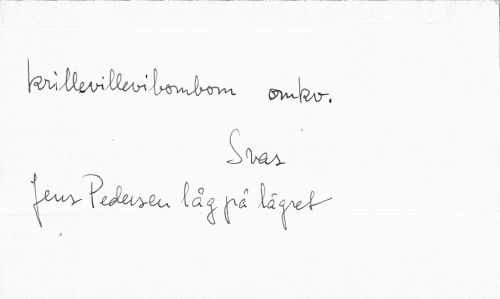 krillevillevibombom omkv.
Svas
Jens Pedersen låg på lägret